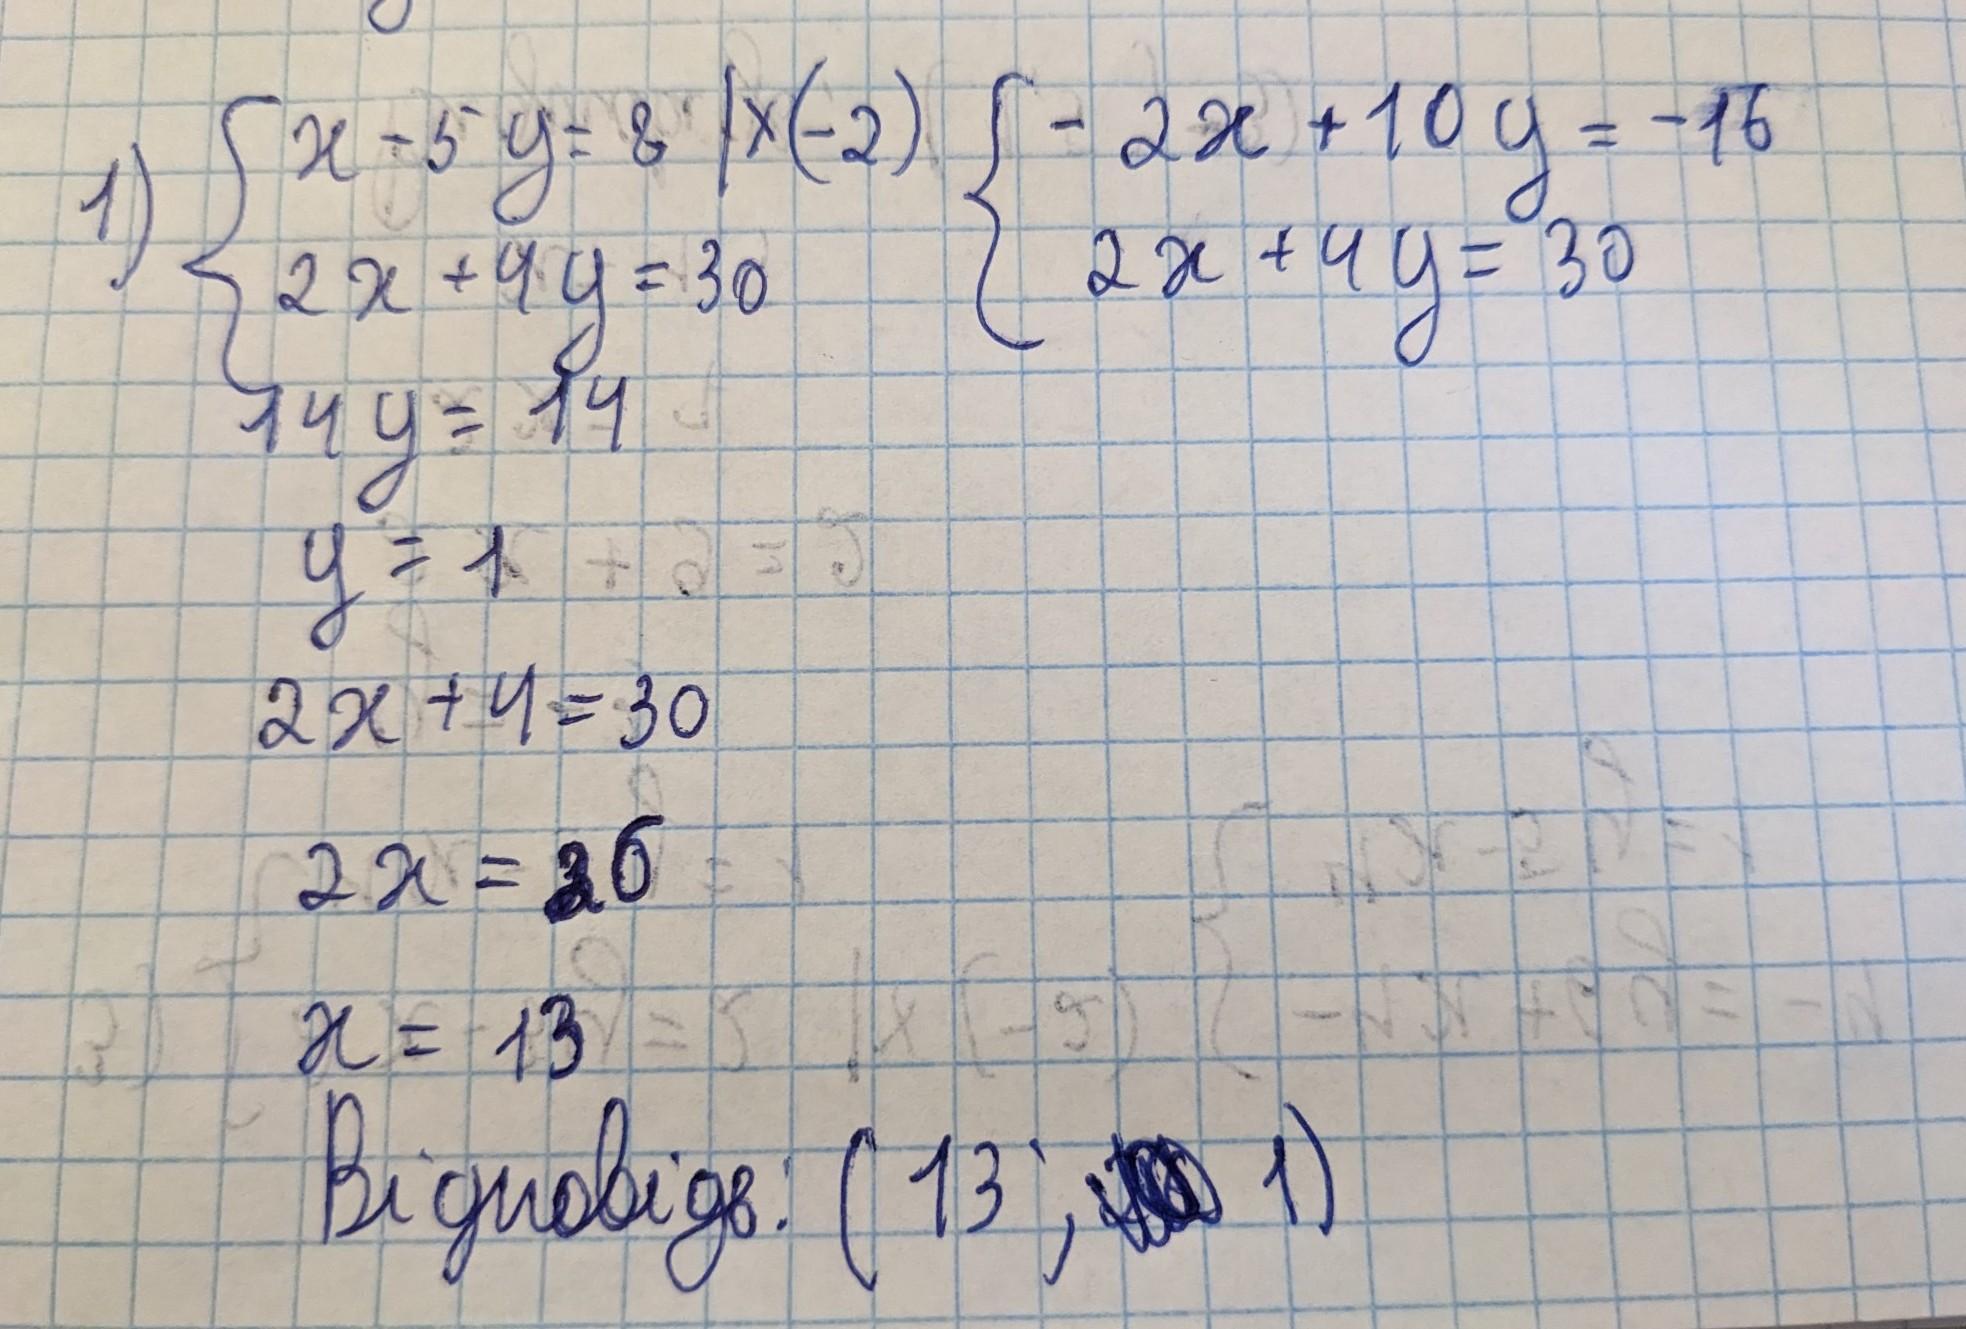 1) { x - 5y = 8 |x(-2) { -2x + 10y = -16
2x + 4y = 30 2x + 4y = 30
14y = 14
y = 1
2x + 4 = 30
2x = 26
x = 13
Відповідь: (13; 1)